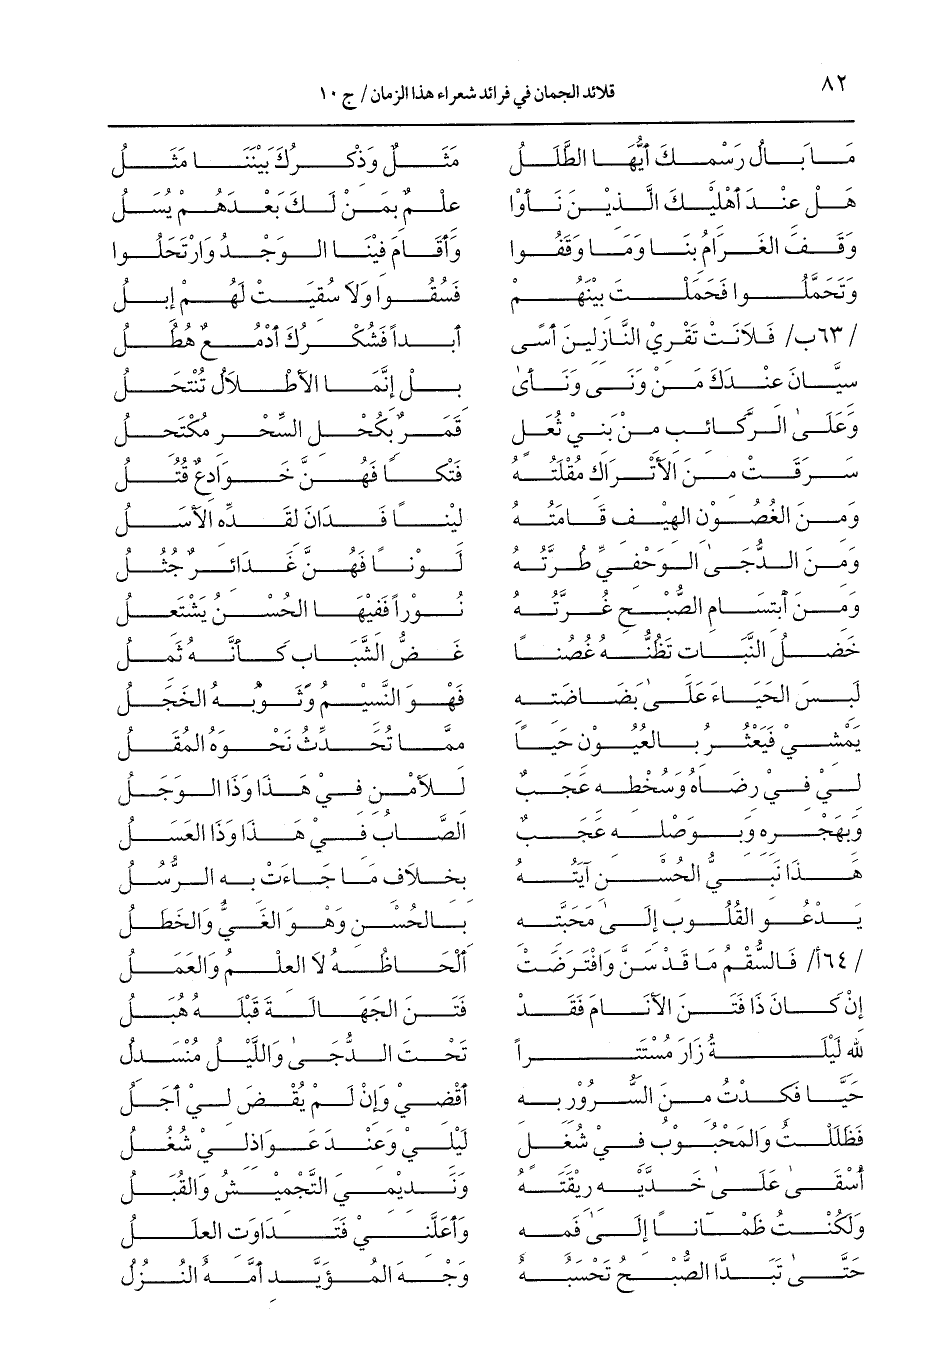 ٨٢
قلائد الجمان في فرائد شعراء هذا الزمان/ ج ١٠
مَا بَالُ رَسْمِكَ أَيُّهَا الطَّلَلُ مَثَلٌ وَذْكرُكَ بَيْنَنَا مَثَلُ
هَلْ عِنْدَ أَهْلِيْكَ الَّذِيْنَ نَأَوْا عِلْمٌ بِمَنْ لَكَ بَعْدَهُمْ يَسَلُ
وَقَفَ الغَرَامُ بِنَا وَمَا وَقَفُوا وَأَقَامَ فِيْنَا الوَجْدُ وَارْتَحَلُوا
وَتَحَمَّلُوا فَحَمَلْتَ بَيْنَهُمُ فَسُقُوا وَلَا سُقِيَتْ لَهُمْ إِبِلُ
/٦٣ب/ فَلَأَنْتَ تَقْرِي النَّازِلِينَ أَسًى أَبداً فَشُكْرُكَ أَدْمُعٌ هُطُلُ
سِيَّانَ عِنْدَكَ مَنْ وَنَى وَنَأَىٰ بَلْ إِنَّمَا الأَطْلَالُ تُنْتَحَلُ
وَعَلَىٰ الرَّكَائبِ مِنْ بَنِي ثُعَلٍ قَمَرٌ بِكُحْلِ السِّحْرِ مُكْتَحِلُ
سَرَقَتْ مِنَ الأَتْرَاكِ مُقْلَتُهُ فَتْكاً فَهُنَّ خَوَادِعٌ قُتُلُ
وَمِنَ الغُصُونِ الهِيْفِ قَامَتُهُ لِيْناً فَدَانَ لِقَدِّهِ الأَسَلُ
وَمِنَ الدُّجَىٰ الوَحْفِيِّ طُرَّتُهُ لَوْناً فَهُنَّ غَدَائرٌ جُثُلُ
وَمِنَ ابْتِسَامِ الصُّبْحِ غُرَّتُهُ نُوْراً فَفِيْهَا الحُسْنُ يَشْتَعِلُ
خَضِلُ النَّبَاتِ تَظُنُّهُ غُصُناً غَضُّ الشَّبَابِ كَأَنَّهُ ثَمِلُ
لَبِسَ الحَيَاءَ عَلَىٰ بَضَاضَتِهِ فَهْوَ النَّسِيْمُ وَثَوبُهُ الخَجَلُ
يَمْشِي فَيَعْثُرُ بِالعُيُوْنِ حَيًا مِمَّا تُحَدِّثُ نَحْوَهُ المُقَلُ
لِيْ فِيْ رِضَاهُ وَسُخْطِهِ عَجَبٌ لِلأَمْنِ فِيْ هَذَا وَذَا الوَجَلُ
وَبِهَجْرِهِ وَبِوَصْلِهِ عَجَبٌ الصَّابُ فِيْ هَذَا وَذَا العَسَلُ
هَذَا نَبِيُّ الحُسْنِ آيَتُهُ بِخِلَافِ مَا جَاءَتْ بِهِ الرُّسُلُ
يَدْعُو القُلُوبَ إِلَى مَحَبَّتِهِ بِالحُسْنِ وَهْوَ الغَيُّ وَالخَطَلُ
/٦٤أ/ فَالسُّقْمُ مَا قَدْ سَنَّ وَافْتَرَضَتْ أَلْحَاظُهُ لَا العِلْمُ وَالعَمَلُ
إِنْ كَانَ ذَا فَتَنَ الأَنَامَ فَقَدْ فَتَنَ الجَهَالَةَ قَبْلَهُ هُبَلُ
للهِ لَيْلَةُ زَارَ مُسْتَتِراً تَحْتَ الدُّجَىٰ وَاللَّيْلُ مُنْسَدِلُ
حَيَّا فَكِدْتُ مِنَ السُّرُوْرِ بِهِ أَقْضِيْ وَإِنْ لَمْ يُقْضَ لِيْ أَجَلُ
فَظَلَلْتُ وَالمَحْبُوْبُ فِيْ شُغُلٍ لَيْلِيْ وَعِنْدَ عَوَاذِلِيْ شُغُلُ
أُسْقَىٰ عَلَىٰ خَدَّيْهِ رِيْقَتَهُ وَنَدِيْمِيَ التَّجْمِيْشُ وَالقُبَلُ
وَلَكُنْتُ ظَمْآناً إِلَىٰ فَمِهِ وَأَعَلَّنِيْ فَتَدَاوَتِ العِلَلُ
حَتَّىٰ تَبَدَّا الصُّبْحُ تَحْسَبُهُ وَجْهَ المُؤَيَّدِ أَمَّهُ النُزُلُ